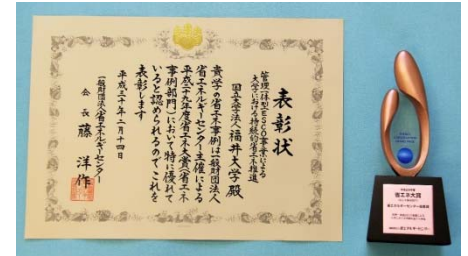 表彰状
管理一体型ESCO事業による
大学における持続的省エネ推進
国立大学法人福井大学 殿
貴学の省エネ事例は一般財団法人
省エネルギーセンター主催による
平成二十九年度省エネ大賞(省エネ
事例部門)において特に優れて
いると認められるのでこれを
表彰します
平成三十年二月十四日
一般財団法人省エネルギーセンター
会長 藤 洋作
省エネ大賞